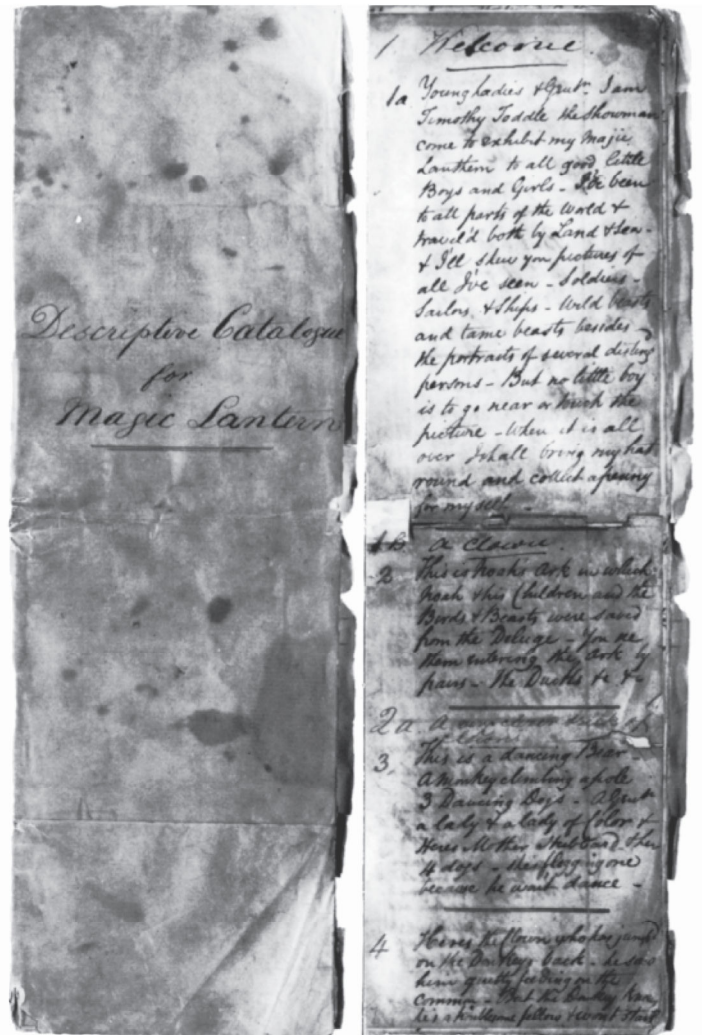 Descriptive Catalogue
for
Magic Lantern
1 Welcome.
1a Young Ladies & Gentn. I am
Timothy Toddle the Showman
come to exhibit my Magic
Lanthern to all good little
Boys and Girls - I've been
to all parts of the World &
travel'd both by Land & Sea -
& I'll shew you pictures of
all I've seen - Soldiers -
Sailors & Ships - Wild beasts
and tame beasts besides -
the portraits of several disting
persons - But no little boy
is to go near or touch the
picture - When it is all
over I shall bring my hat
round and collect a penny
for myself -
1b. A Clown.
2 This is Noahs Ark in which
Noah & his Children and the
Birds & Beasts were saved
from the Deluge - You see
them entering the Ark by
pairs - The Ducks &c &c
2a A
3. This is a dancing Bear -
A Monkey climbing a pole
3 Dancing Dogs - A Gentn
a lady & a lady of Color &
Heres Mother Hubbard & her
4 dogs - She's flogging one
because he wont dance -
4 Heres the Clown who has jump'd
on the Donkeys back - he saw
him quietly feeding on the
common - But the Donkey knows
he's a troublesome fellow & wont